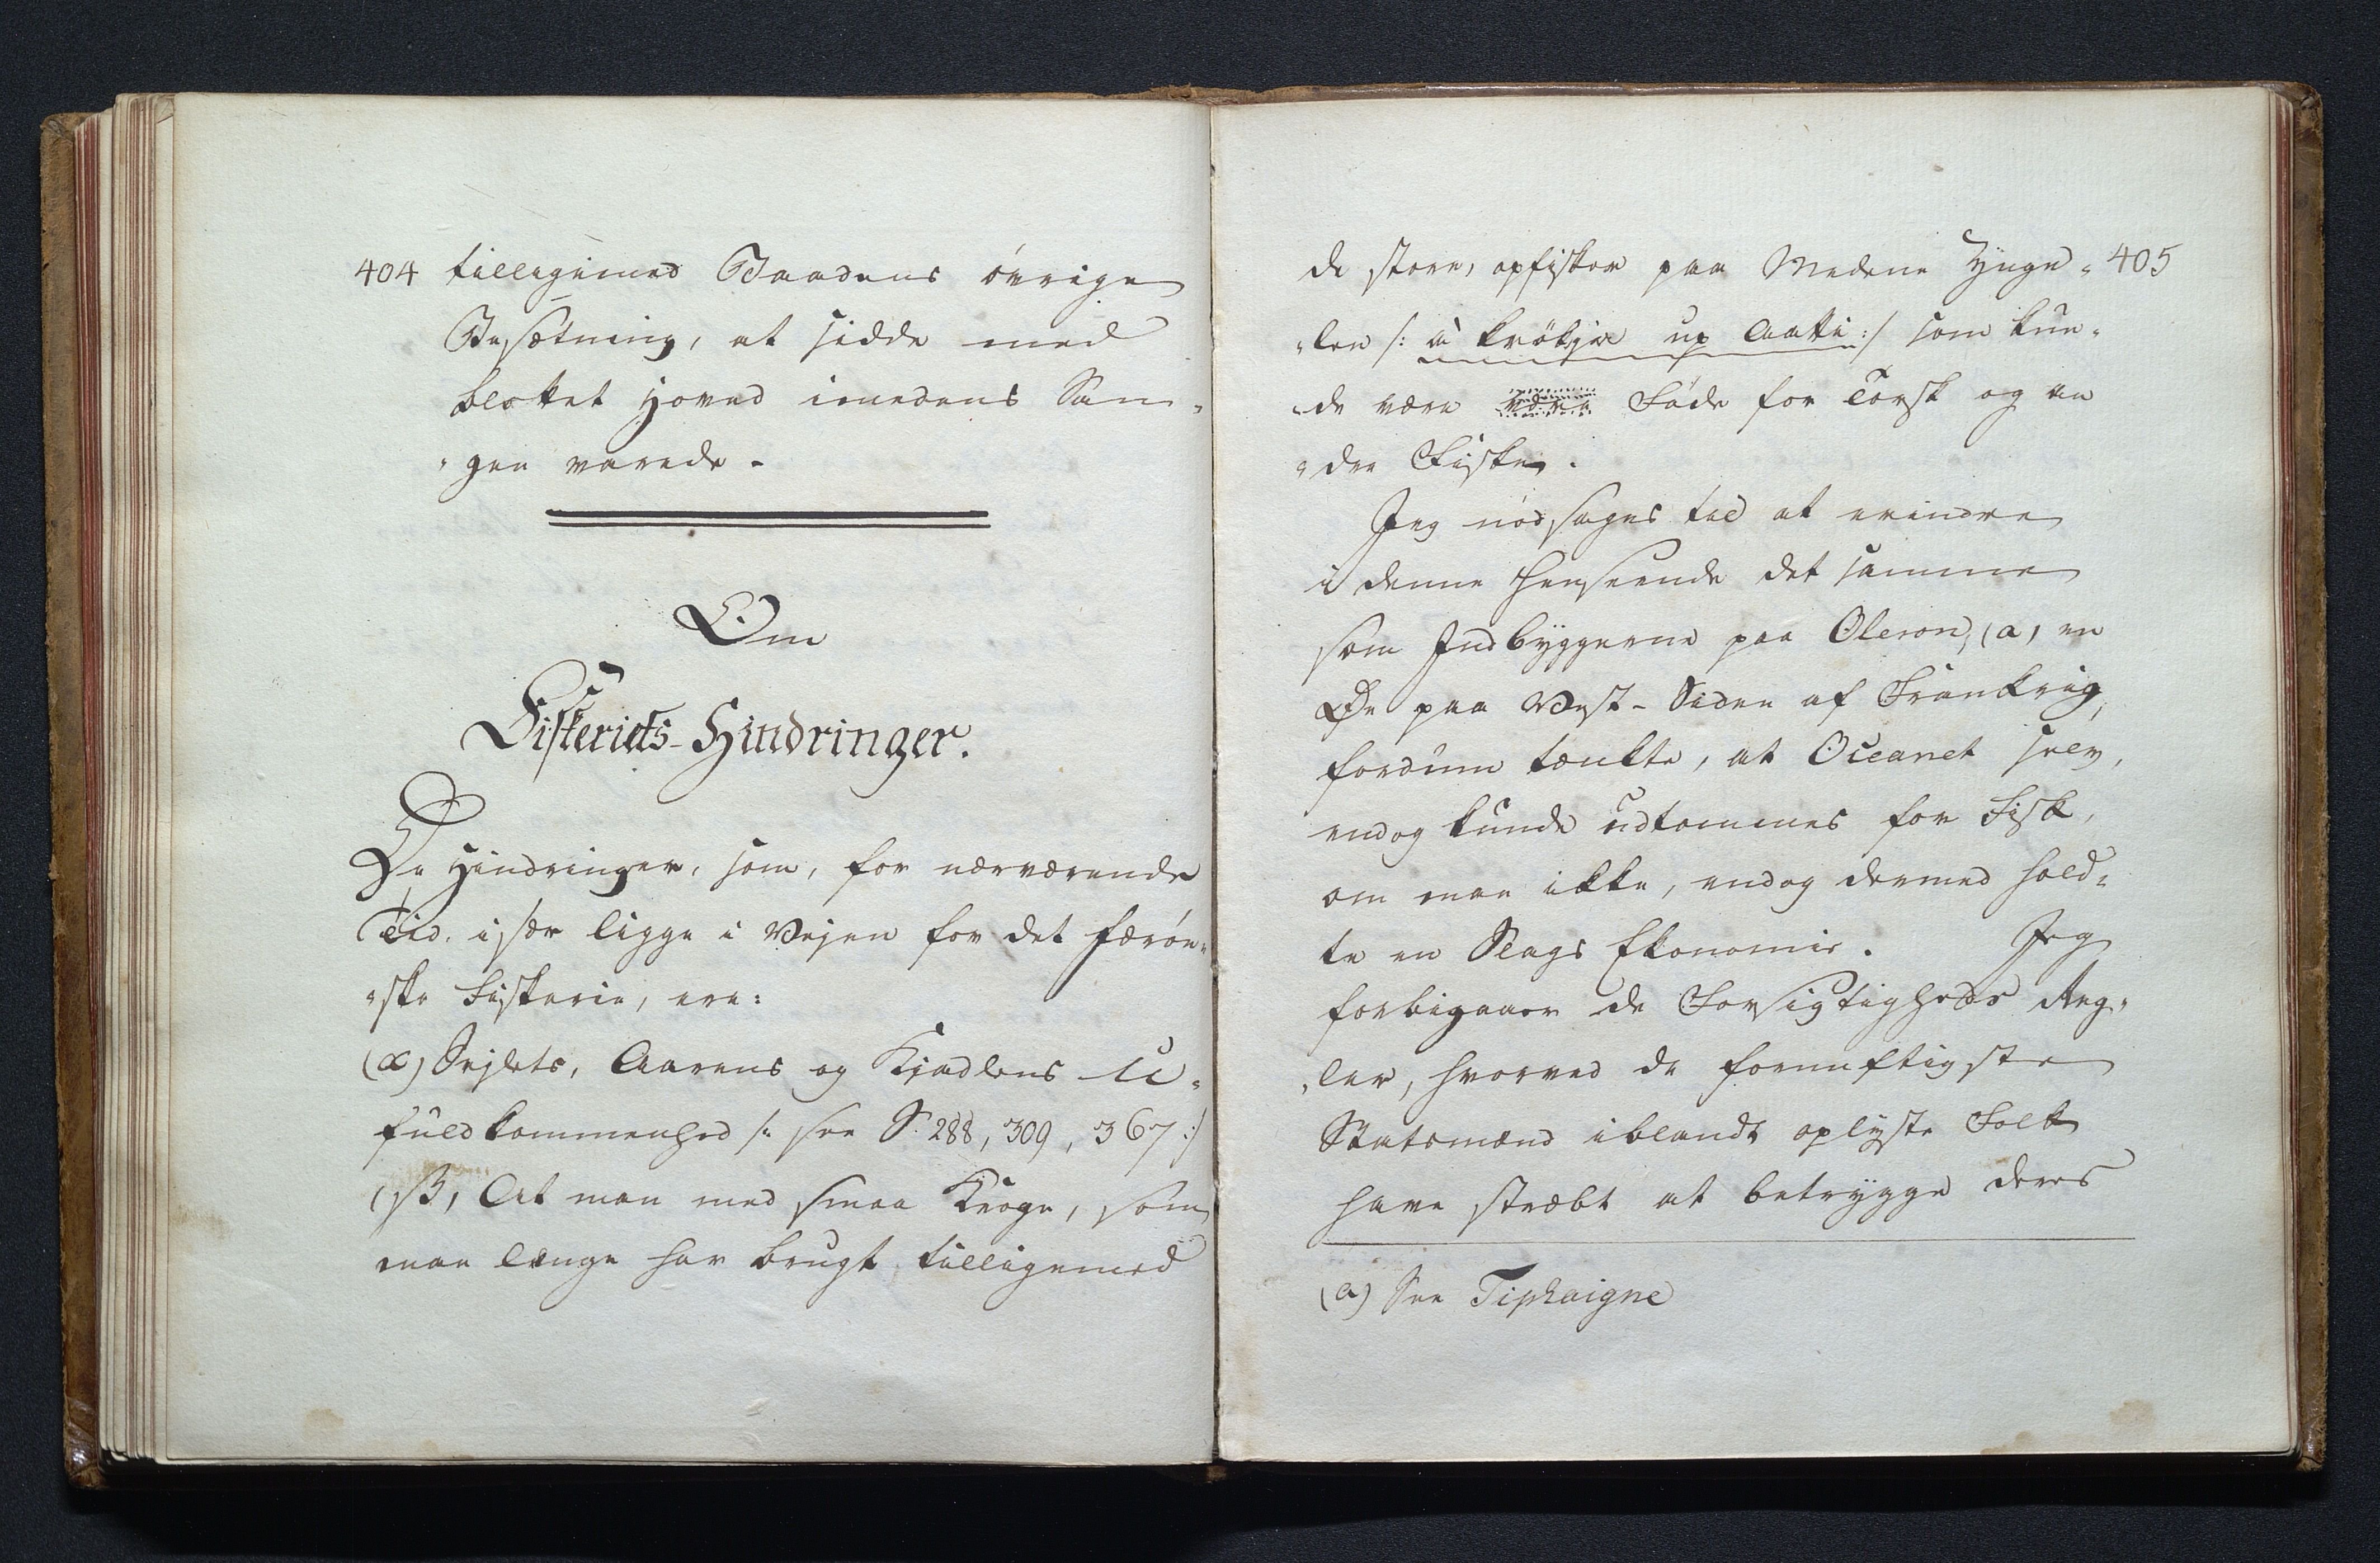 404 tilligemed Baadens övrige
Besætning, at sidde med
blottet Hoved imedens San„
„gen varede.
Om
Fiskeriets-Hindringer.
De Hindringer, som, for nærværende
Tid, især ligge i Vejen for det færöe„
„ske Fiskerie, ere:
(α) Sejlets, Aarens og Kjadlens U„
fuldkommenhed /: see S. 288, 309, 367 :/
(β) At man med smaa Kroge, som
man længe har brugt tilligemed
de store, opfisker paa Medene Ynge„ 405
„len /: à krökja up Aatti :/ som kun„
„de være være Föde for Torsk og an
„dre Fiske.
Jeg nödsages til at erindre
i denne Henseende det samme
som Indbyggerne paa Oleron, (a) en
Øe paa Vest-Siden af Frankrig,
fordum tænkte, at Oceanet selv,
endog kunde udtömmes for Fisk,
om man ikke, endog dermed hold„
te en Slags Ekonomie. Jeg
forbigaaer de Forsigtigheds Reg„
„ler, hvorved de fornuftigste
Statsmænd iblandt oplyste Folk
have stræbt at betrygge deres
(a) See Tiphaigne